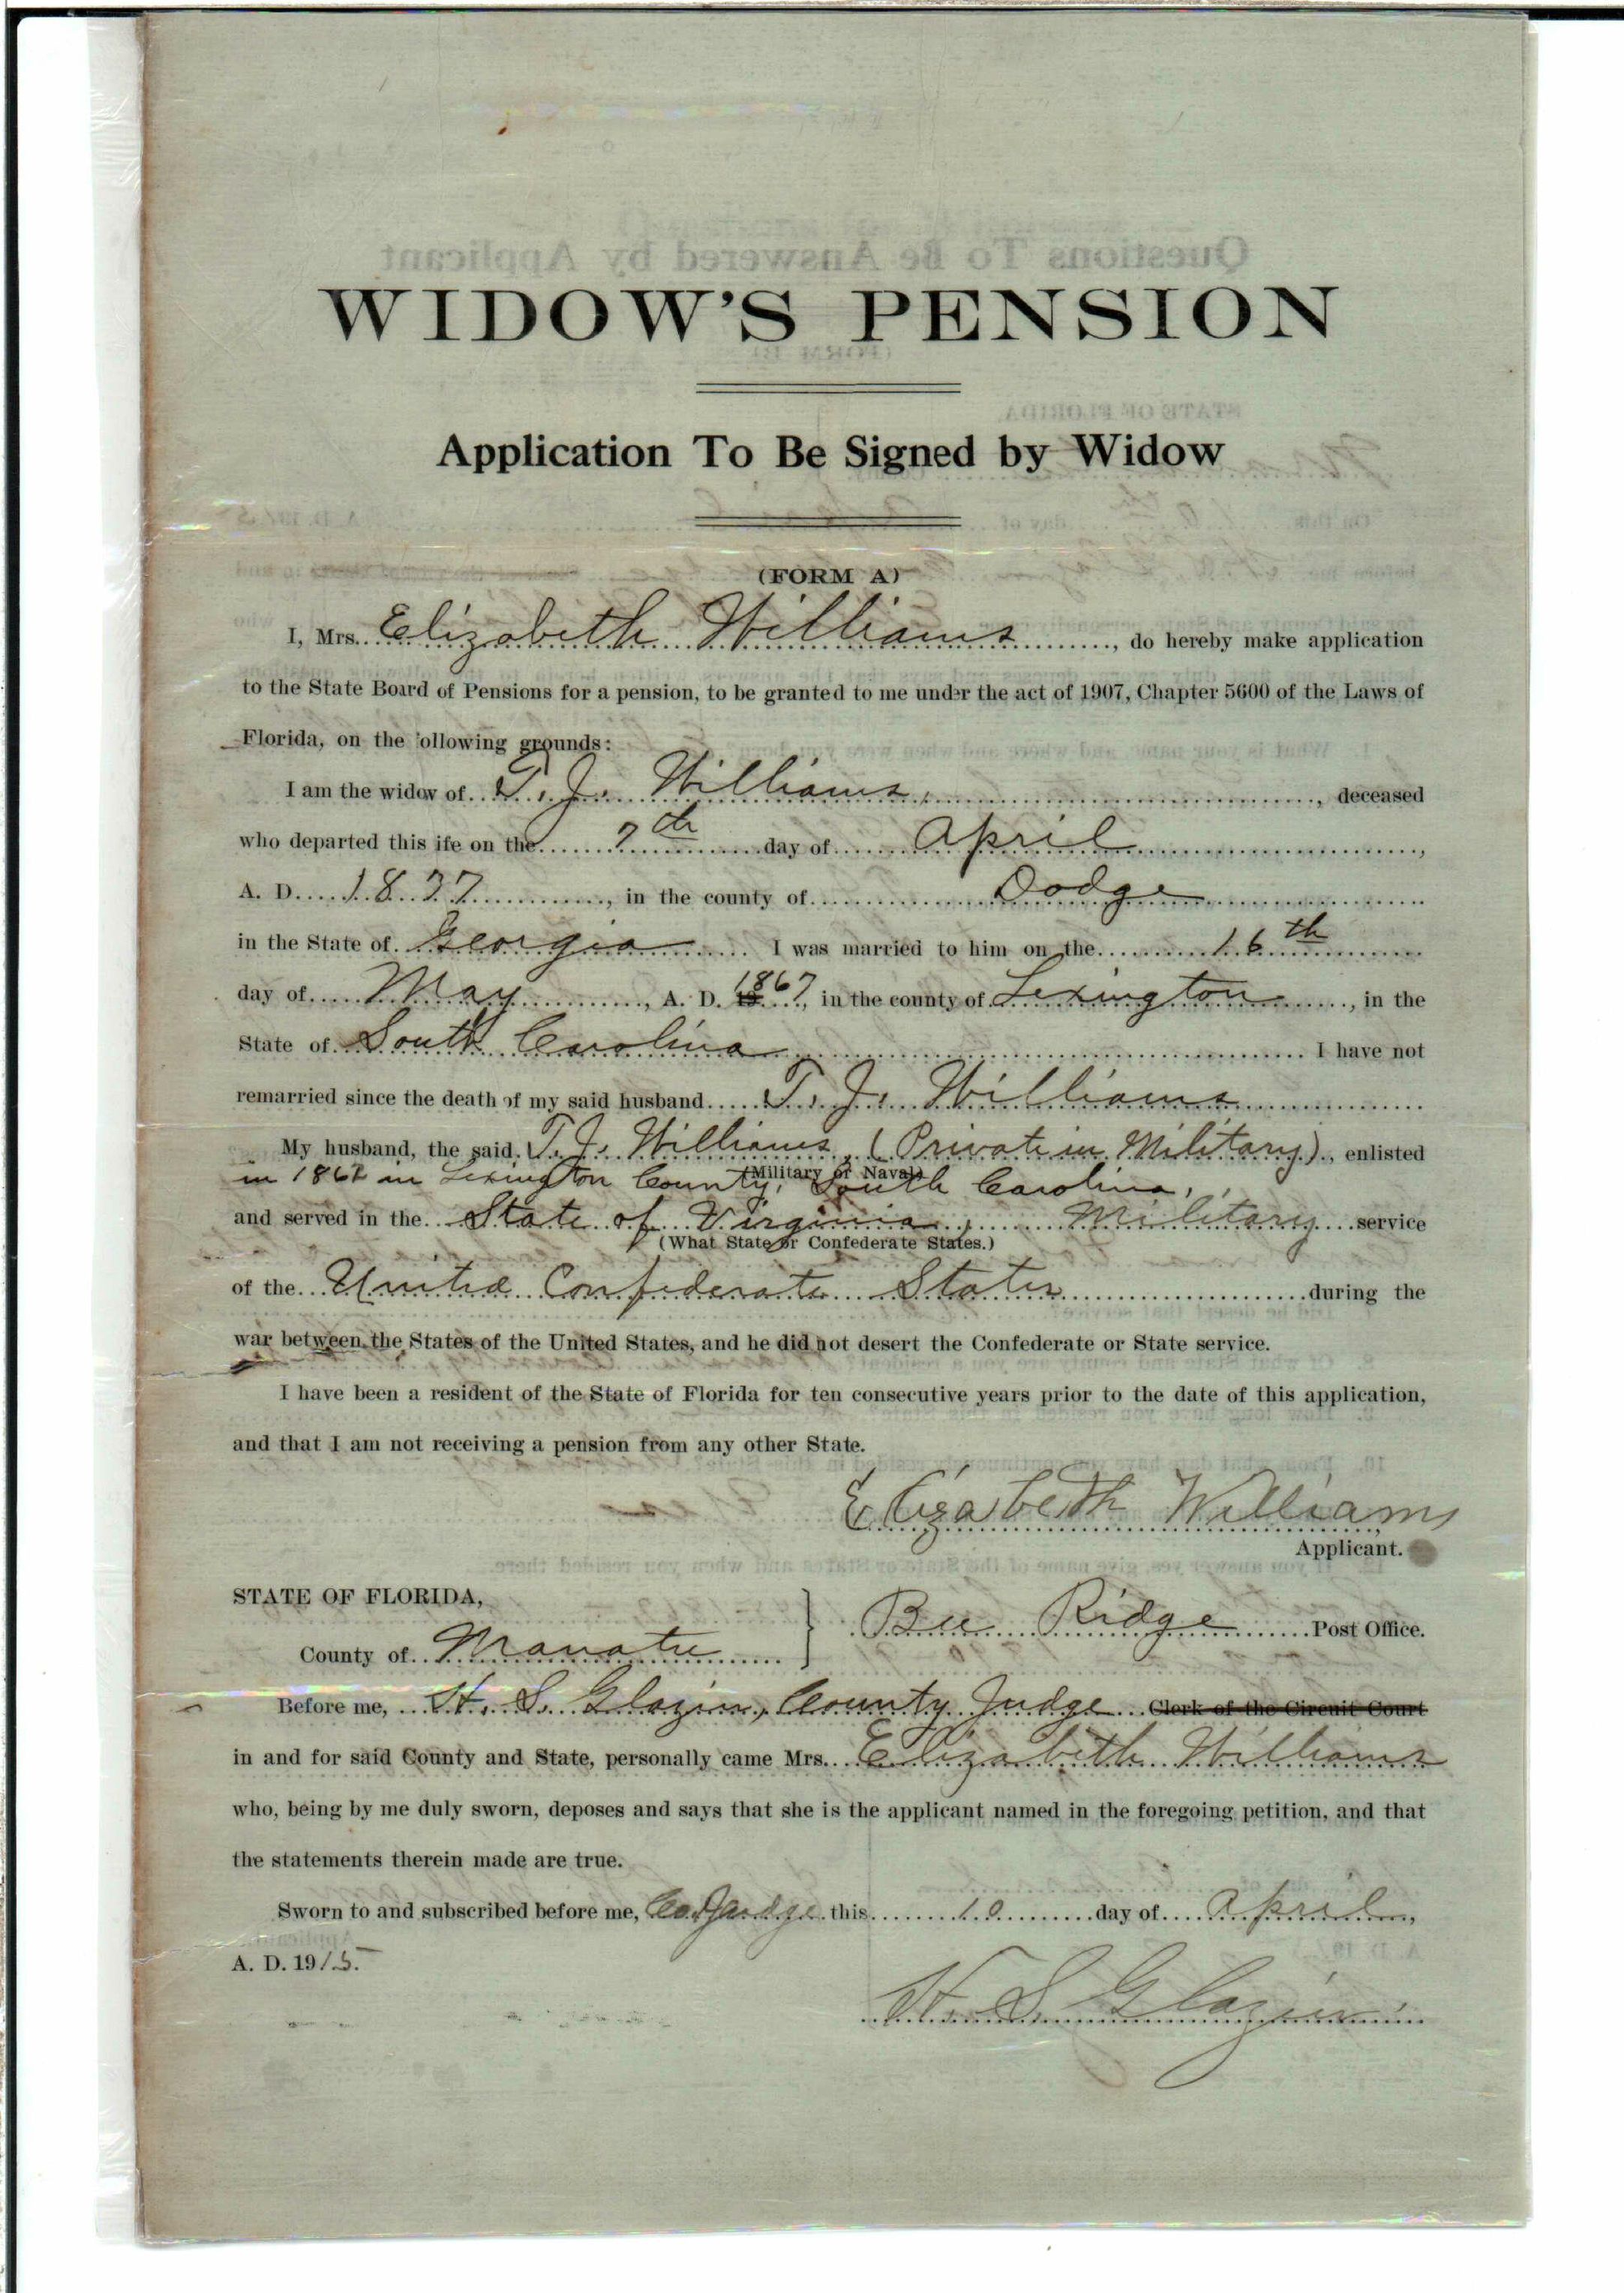 WIDOW'S PENSION
Application To Be Signed by Widow
(FORM A)
I, Mrs. Elizabeth Williams, do hereby make application
to the State Board of Pensions for a pension, to be granted to me under the act of 1907, Chapter 5600 of the Laws of
Florida, on the following grounds:
I am the widow of T. J. Williams, deceased
who departed this life on the 7th day of April,
A. D. 1837, in the county of Dodge
in the State of Georgia I was married to him on the 16th
day of May, A. D. 1867, in the county of Lexington, in the
State of South Carolina I have not
remarried since the death of my said husband T. J. Williams
My husband, the said T. J. Williams, (Private in Military), enlisted
(Military or Naval)
in 1862 in Lexington County, South Carolina,
and served in the State of Virginia, Military service
(What State or Confederate States.)
of the United Confederate States during the
war between the States of the United States, and he did not desert the Confederate or State service.
I have been a resident of the State of Florida for ten consecutive years prior to the date of this application,
and that I am not receiving a pension from any other State.
Elizabeth Williams
Applicant.
STATE OF FLORIDA,
County of Manatee
Bee Ridge Post Office.
Before me, H. S. Glazier, County Judge Clerk of the Circuit Court
in and for said County and State, personally came Mrs. Elizabeth Williams
who, being by me duly sworn, deposes and says that she is the applicant named in the foregoing petition, and that
the statements therein made are true.
Sworn to and subscribed before me, Co. Judge this 10 day of April,
A. D. 1915.
H. S. Glazier